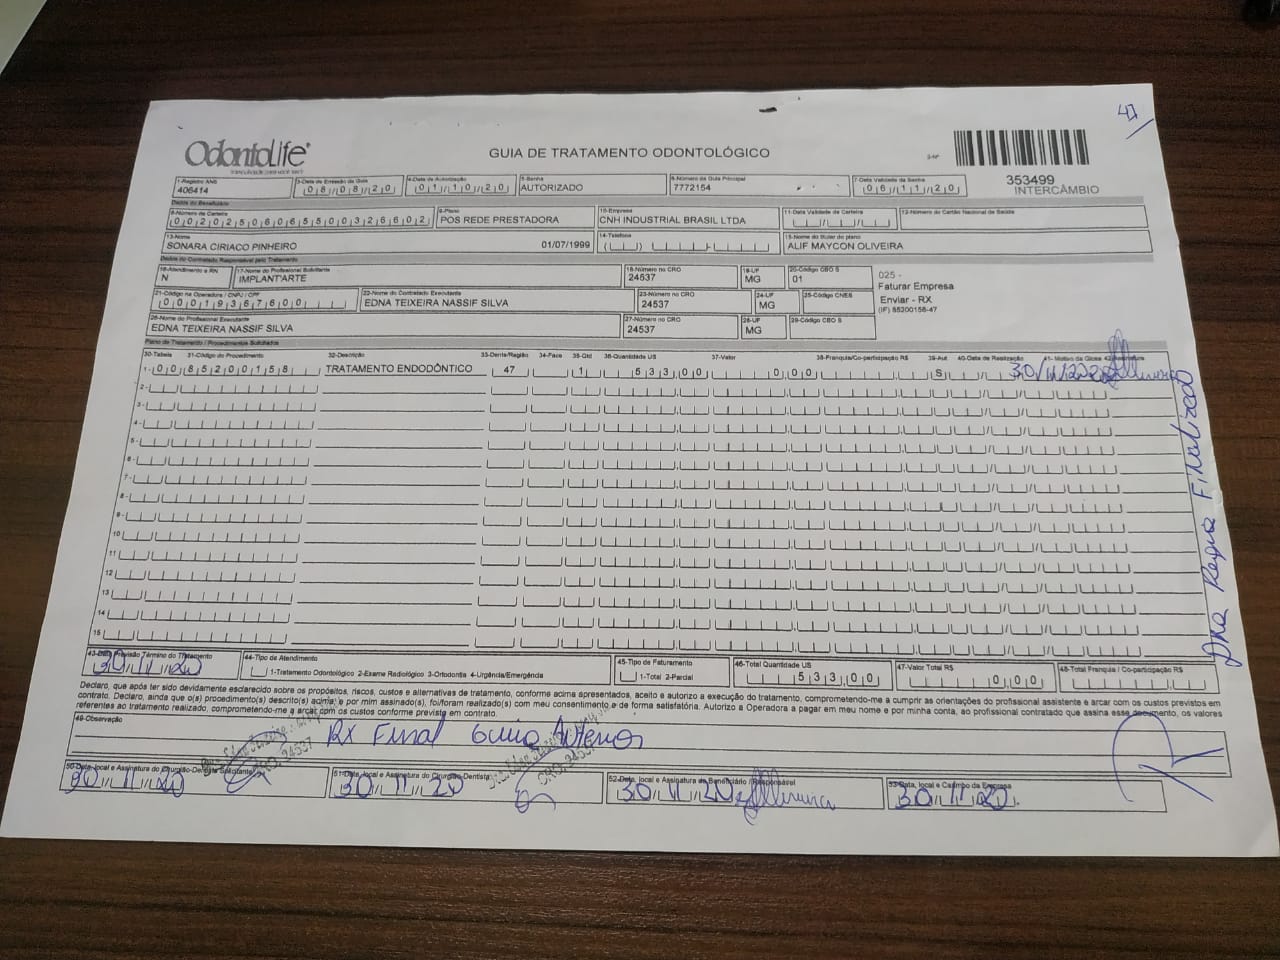 47
OdontoLife
GUIA DE TRATAMENTO ODONTOLÓGICO
2-Nº
353499
INTERCÂMBIO
1-Registro ANS
406414
3-Data de Emissão da Guia
08/08/20
4-Data de Autorização
01/10/20
5-Senha
AUTORIZADO
6-Número da Guia Principal
7772154
7-Data Validade da Senha
06/11/20
Dados do Beneficiário
8-Número da Carteira
00202506065500326602
9-Plano
POS REDE PRESTADORA
10-Empresa
CNH INDUSTRIAL BRASIL LTDA
11-Data Validade da Carteira
12-Número do Cartão Nacional de Saúde
13-Nome
SONARA CIRIACO PINHEIRO 01/07/1999
14-Telefone
15-Nome do titular do plano
ALIF MAYCON OLIVEIRA
Dados do Contratado Responsável pelo Tratamento
16-Atendimento a RN
N
17-Nome do Profissional Solicitante
IMPLANT'ARTE
18-Número no CRO
24537
19-UF
MG
20-Código CBO S
01
025 -
Faturar Empresa
Enviar - RX
(IF) 85200158-47
21-Código na Operadora / CNPJ / CPF
00019367600
22-Nome do Contratado Executante
EDNA TEIXEIRA NASSIF SILVA
23-Número no CRO
24537
24-UF
MG
25-Código CNES
26-Nome do Profissional Executante
EDNA TEIXEIRA NASSIF SILVA
27-Número no CRO
24537
28-UF
MG
29-Código CBO S
Plano de Tratamento / Procedimentos Solicitados
30-Tabela 31-Código do Procedimento 32-Descrição 33-Dente/Região 34-Face 35-Qtd 36-Quantidade US 37-Valor 38-Franquia/Co-participação R$ 39-Aut 40-Data de Realização 41-Motivo da Glosa 42-Assinatura
1- 00 85200158 TRATAMENTO ENDODÔNTICO 47 1 533,00 0,00 S 30/11/2020
2-
3-
4-
5-
6-
7-
8-
9-
10
11
12
13
14
15
Dna Regia Finalizado
43-Data Previsão Término do Tratamento
30/11/20
44-Tipo de Atendimento
1-Tratamento Odontológico 2-Exame Radiológico 3-Ortodontia 4-Urgência/Emergência
45-Tipo de Faturamento
1-Total 2-Parcial
46-Total Quantidade US
533,00
47-Valor Total R$
0,00
48-Total Franquia / Co-participação R$
Declaro, que após ter sido devidamente esclarecido sobre os propósitos, riscos, custos e alternativas de tratamento, conforme acima apresentados, aceito e autorizo a execução do tratamento, comprometendo-me a cumprir as orientações do profissional assistente e arcar com os custos previstos em
contrato. Declaro, ainda que o(s) procedimento(s) descrito(s) acima, e por mim assinado(s), foi/foram realizado(s) com meu consentimento e de forma satisfatória. Autorizo a Operadora a pagar em meu nome e por minha conta, ao profissional contratado que assina esse documento, os valores
referentes ao tratamento realizado, comprometendo-me a arcar com os custos conforme previsto em contrato.
49-Observação
RX Final Guia Anterior
CRO: 24537
CRO: 24537
50-Data, local e Assinatura do Cirurgião-Dentista Solicitante
30/11/20
51-Data, local e Assinatura do Cirurgião-Dentista
30/11/20
52-Data, local e Assinatura do Beneficiário / Responsável
30/11/20
53-Data, local e Carimbo da Empresa
30/11/20